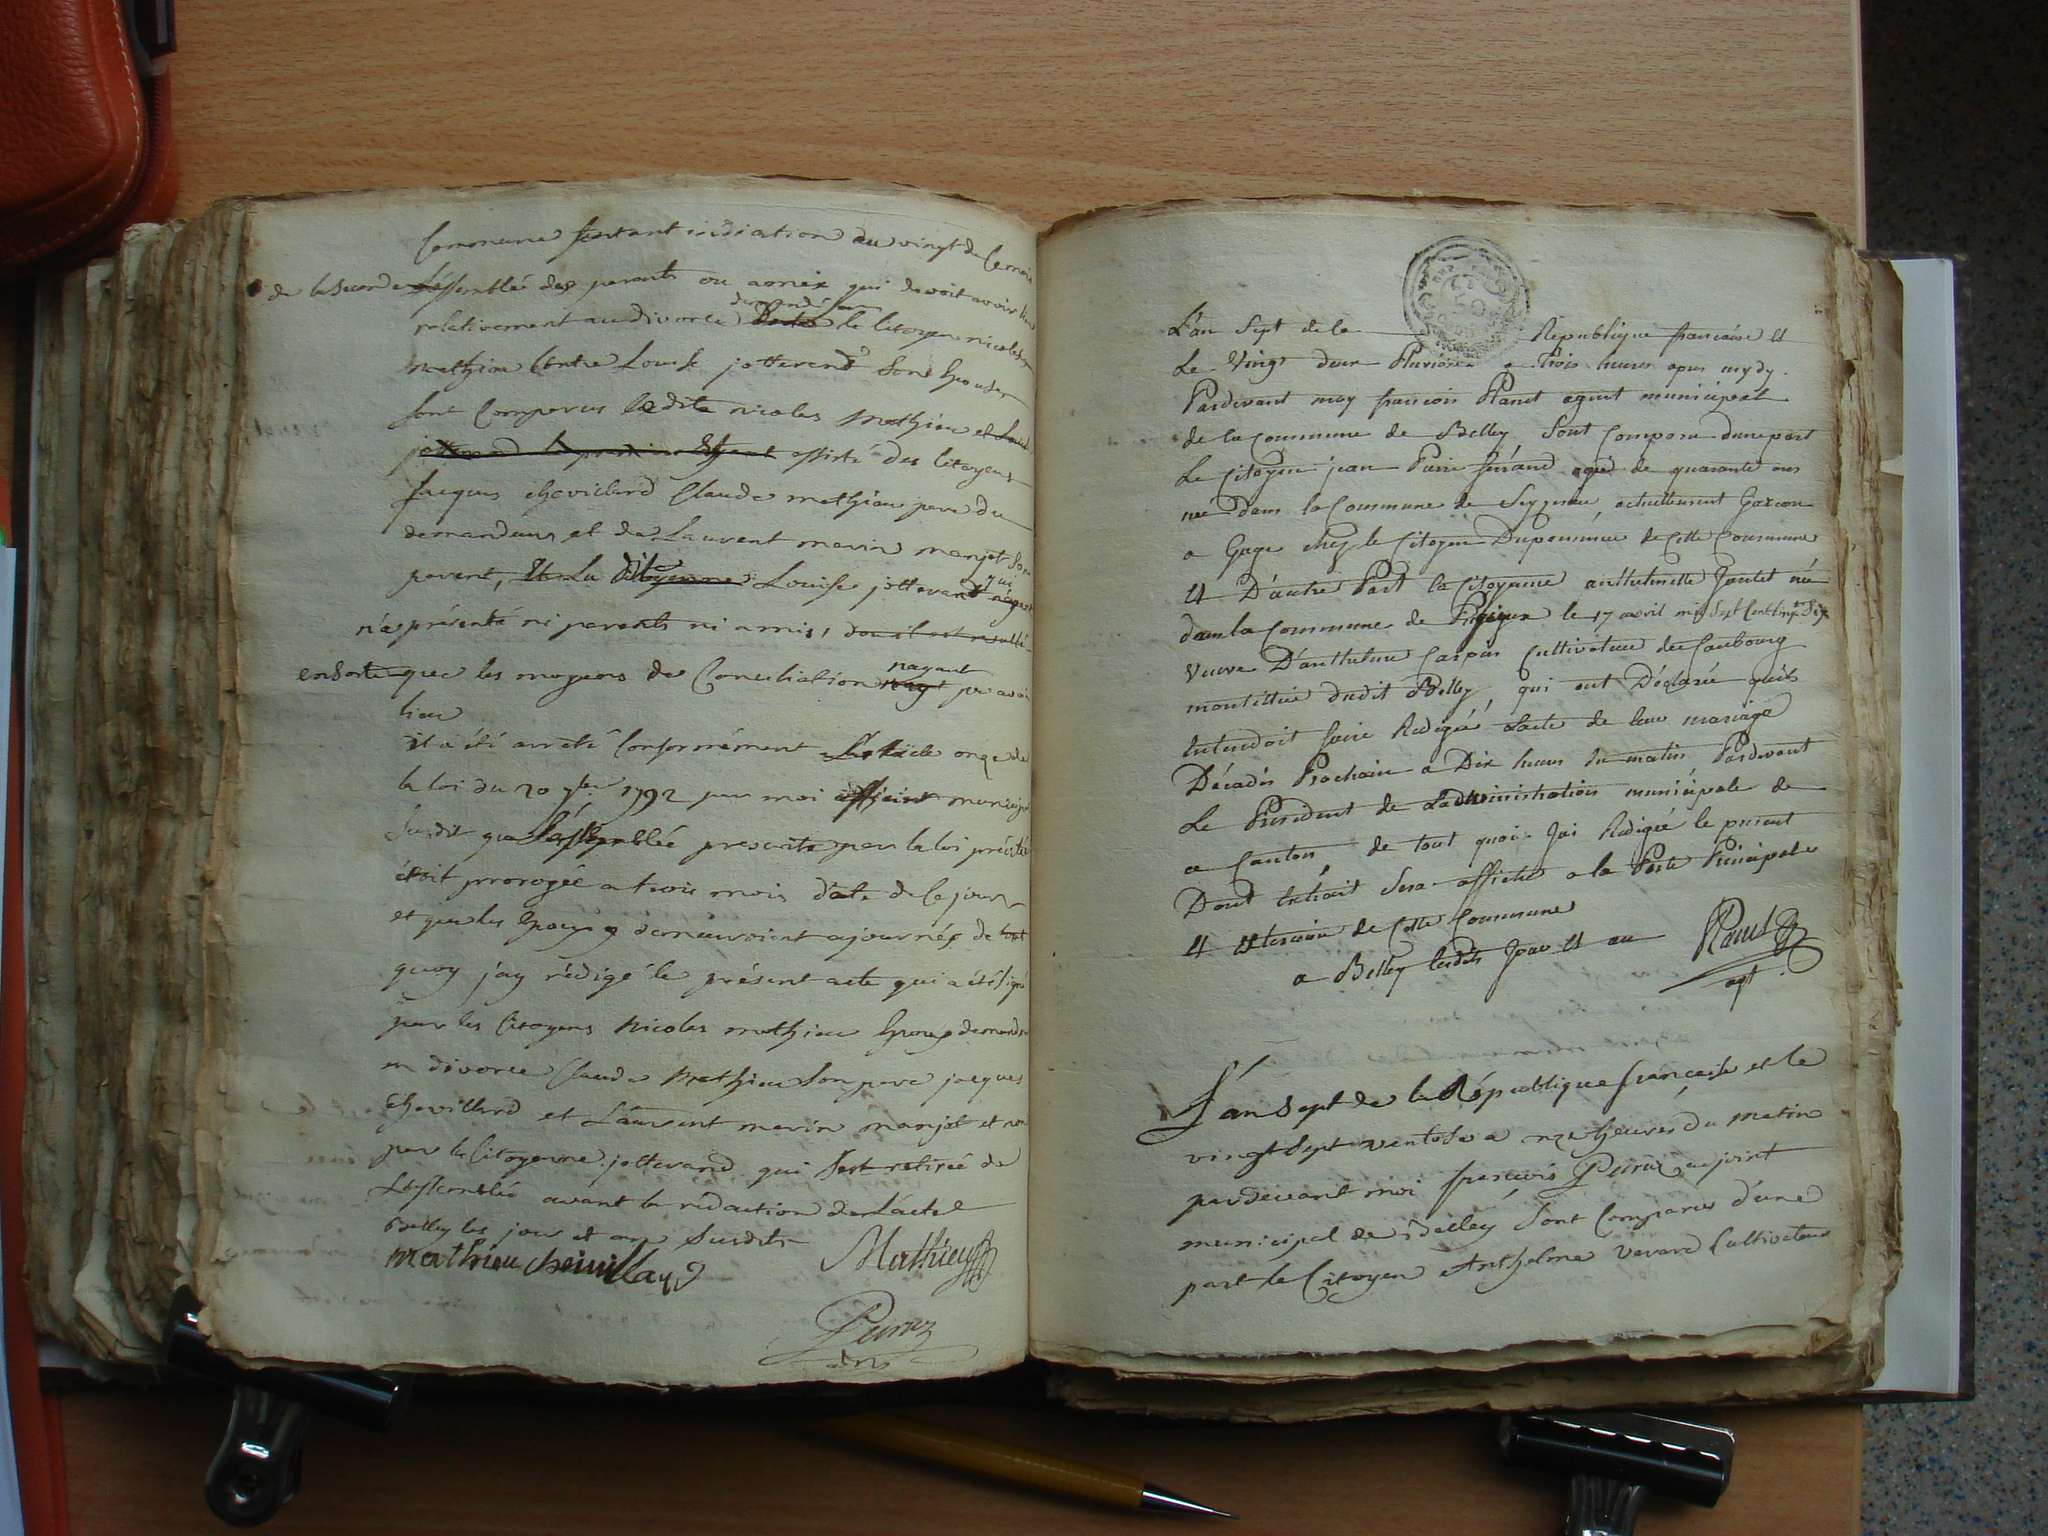 Commune portant indication au vingt de Ce mois
de la seconde assemblée des parents ou amix qui devoit avoir lieu
relativement au divorce demandé le Citoyen nicolas
mathieu Contre Louise jotterand Son Epouse
sont Comparus ledits nicolas Mathieu et Louise
assisté des Citoyens
jacques chevillard Claude mathieu pere du
demandeur et de Laurent marin manjot Son
parent, Et La Citoyenne Louise jotterand qui
n'a présenté ni parents ni amis, dou il est resulté
ensorte que les moyens de Conciliation nayant pu avoir
lieu
il a été arreté Conformément L'article onze de
la loi du 20 7bre 1792 par moi municipal
Susdit que L'assemblée prescrite par la loi précitée
étoit prorogée a trois mois date de Ce jour
et que les Epoux demeuroient ajournés de tout
quoy j'ay rédigé le présent acte qui a été signé
par les Citoyens Nicolas mathieu Epoux demandeur
en divorce Claude Mathieu Son pere jacques
Chevillard et Laurent marin manjot et non
par la Citoyenne jotterand qui s'est retirée de
L'assemblée avant la rédaction de L'acte
Belley les jour et an Susdits
mathieu cheuillard Mathieu
Peiraz
adns
L'an Sept de la Republique francaise et
Le Vingt deux Pluviose a trois heures apres mydy.
Pardevant moy francois Planet agent municipal
de la Commune de Belley, Sont Comparu d'une part
Le Citoyen jean Pierre ferrand agé de quarante ans
née dans la Commune de Seyzerieu, actuellement Garcon
a Gage chez le Citoyen Duponsieu de Cette Commune
Et D'autre Part la Citoyenne anthelmette Goutet née
dans la Commune de le 17 avril mil Sept Cent Cinqte Six
Veuve D'anthelme Caspar Cultivateur du Faubourg
montillier dudit Belley, qui ont Déclaré qu'ils
Entendoit faire Rediger L'acte de leur mariage
Décadis Prochain a Dix heures du matin Pardevant
Le President de L'administration municipale de
ce Canton, de tout quoi Jai Redigée le present
Dont Extrait Sera affiché a la Porte Principale
Et Exterieure de Cette Commune
a Belley lesdits Jour Et an Planet
agt.
L'an Sept de la République francaise et le
vingt Sept ventose a onze heures du matin
pardevant moi francois Peiraz adjoint
municipal de Belley Sont Comparus d'une
part le Citoyen Anthelme Varard Cultivateur